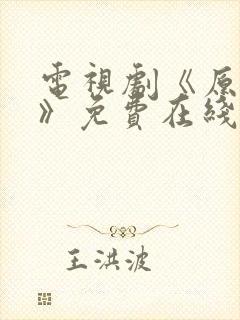 電視劇《原
》免費在綫
王洪波